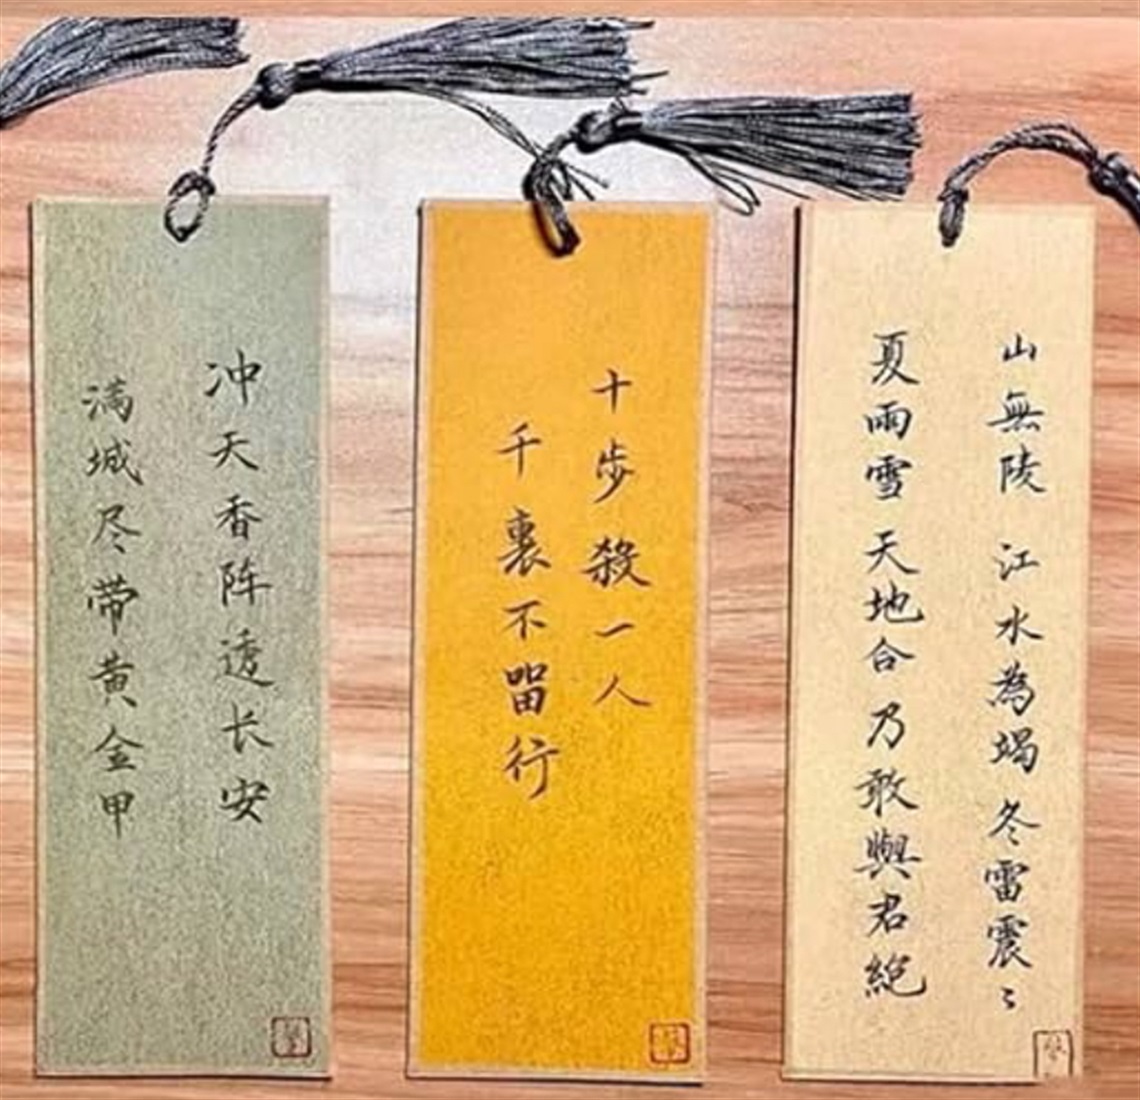 冲天香阵透长安
满城尽带黄金甲
十步殺一人
千裏不㽞行
山無陵 江水為竭 冬雷震〻
夏雨雪 天地合 乃敢與君絶